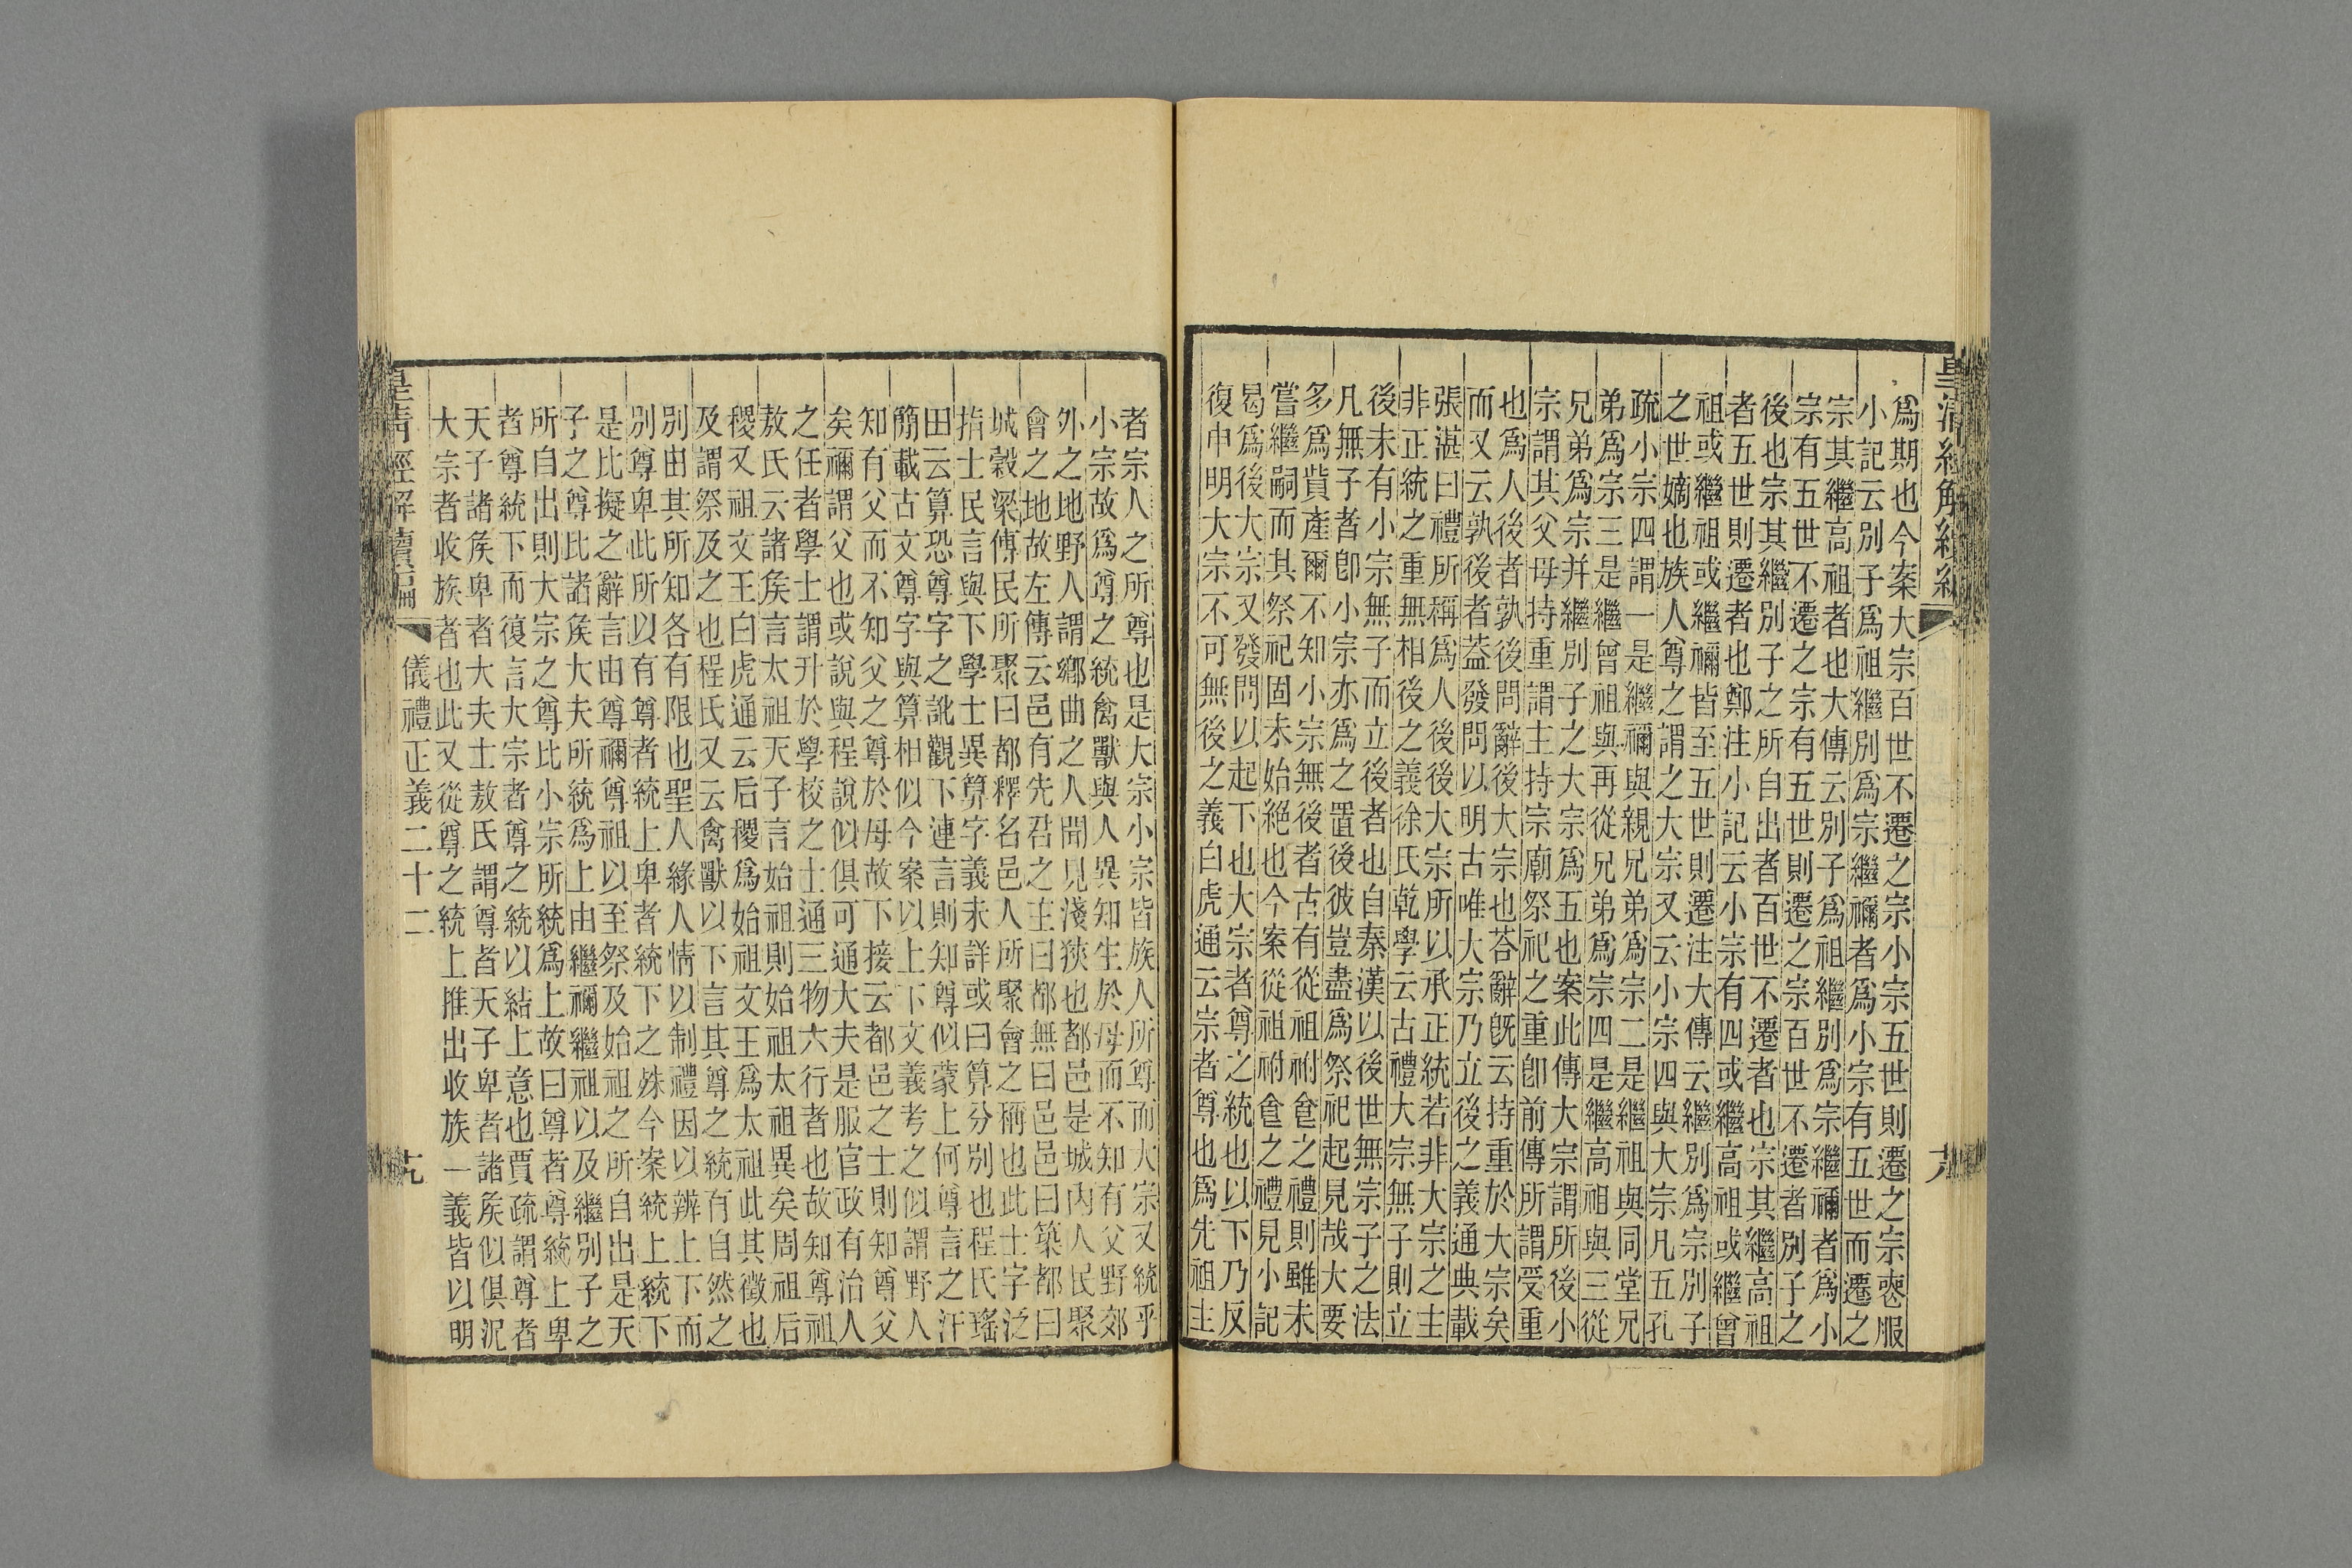 爲期也今案大宗百世不遷之宗小宗五世則遷之宗喪服
小記云別子爲祖繼別爲宗繼禰者爲小宗有五世而遷之
宗其繼高祖者也大傳云別子爲祖繼別爲宗繼禰者爲小
宗有五世不遷之宗有五世則遷之宗百世不遷者別子之
後也宗其繼別子之所自出者百世不遷者也宗其繼高祖
者五世則遷者也鄭注小記云小宗有四或繼高祖或繼曾
祖或繼祖或繼禰皆至五世則遷注大傳云繼別爲宗別子
之世嫡也族人尊之謂之大宗又云小宗四與大宗凡五孔
疏小宗四謂一是繼禰與親兄弟爲宗二是繼祖與同堂兄
弟爲宗三是繼曾祖與再從兄弟爲宗四是繼高祖與三從
兄弟爲宗并繼別子之大宗爲五也案此傳大宗謂所後小
宗謂其父母持重謂主持宗廟祭祀之重卽前傳所謂受重
也爲人後者孰後問辭後大宗也荅辭旣云持重於大宗矣
而又云孰後者葢發問以明古唯大宗乃立後之義通典載
張湛曰禮所稱爲人後後大宗所以承正統若非大宗之主
非正統之重無相後之義徐氏乾學云古禮大宗無子則立
後未有小宗無子而立後者也自秦漢以後世無宗子之法
凡無子者卽小宗亦爲之置後彼豈盡爲祭祀起見哉大要
多爲貲產爾不知小宗無後者古有從祖祔食之禮則雖未
嘗繼嗣而其祭祀固未始絕也今案從祖祔食之禮見小記
曷爲後大宗又發問以起下也大宗者尊之統也以下乃反
復申明大宗不可無後之義白虎通云宗者尊也爲先祖主
者宗人之所尊也是大宗小宗皆族人所尊而大宗又統乎
小宗故爲尊之統禽獸與人異知生於母而不知有父野郊
外之地野人謂鄉曲之人聞見淺狹也都邑是城內人民聚
會之地故左傳云邑有先君之主曰都無曰邑邑曰築都曰
城穀梁傳民所聚曰都釋名邑人所聚會之稱也此士字泛
指士民言與下學士異算字義未詳或曰算分別也程氏瑤
田云算恐尊字之訛觀下連言則知尊似蒙上何尊言之汗
簡載古文尊字與算相似今案以上下文義考之似謂野人
知有父而不知父之尊於母故下接云都邑之士則知尊父
矣禰謂父也或說與程說似俱可通大夫是服官政有治人
之任者學士謂升於學校之士通三物六行者也故知尊祖
敖氏云諸侯言太祖天子言始祖則始祖太祖異矣周祖后
稷又祖文王白虎通云后稷爲始祖文王爲太祖此其徵也
及謂祭及之也程氏又云禽獸以下言其尊之統有自然之
別由其所知各有限也聖人緣人情以制禮因以辨上下而
別尊卑此所以有尊者統上卑者統下之殊今案統上統下
是比擬之辭言由尊禰尊祖以至祭及始祖之所自出是天
子之尊比諸侯大夫所統爲上由繼禰繼祖以及繼別子之
所自出則大宗之尊比小宗所統爲上故曰尊者尊統上卑
者尊統下而復言大宗者尊之統以結上意也賈疏謂尊者
天子諸侯卑者大夫士敖氏謂尊者天子卑者諸侯似俱泥
大宗者收族者也此又從尊之統上推出收族一義皆以明
皇清經解續編
儀禮正義二十二